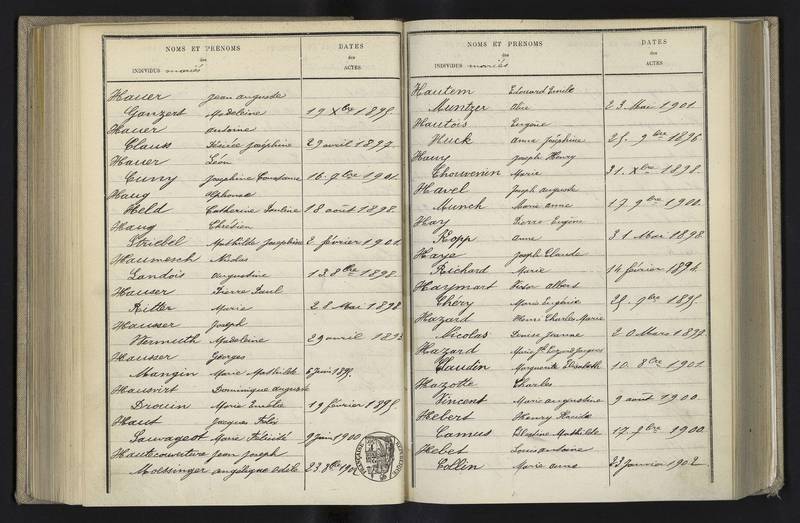 NOMS ET PRÉNOMS DATES
des des
INDIVIDUS mariés ACTES
Hauer Jean auguste
Ganzert Madeleine 19 Xbre 1895.
Hauer Antoine
Claus Désirée Joséphine 29 avril 1897.
Hauer Léon
Cuny Joséphine Constance 16. 9bre 1901.
Haug Alphonse
Held Catherine Pauline 18 août 1898.
Haug Chrétien
Striebel Mathilde Joséphine 2 février 1901.
Haumesch Nicolas
Landois Augustine 13. 8bre 1898.
Hauser Pierre Paul
Ritter Marie 28 Mai 1898
Hausser Joseph
Wermuth Madeleine 29 avril 1893
Hausser Georges
Mangin Marie Mathilde 5 Juin 1895.
Hausvirt Dominique auguste
Drouin Marie Emélie 19 février 1895.
Haut Jacques Félix
Sauvageot Marie Félicité 9 Juin 1900
Hautecouverture Jean Joseph
Moessinger angélique adèle 23. 8bre
NOMS ET PRÉNOMS DATES
des des
INDIVIDUS mariés ACTES
Hautem Edouard Emile
Muntzer 23. Mai 1901.
Hautois Eugène
Huck Anne Joséphine 25. 9bre 1896.
Hauy Joseph Henry
Chouvenin Marie 31. Xbre 1898.
Havel Joseph auguste
Munch Marie anne 17. 9bre 1900.
Hay Pierre Eugène
Kopp Anne 31 Mai 1898.
Haye Joseph Claude
Richard Marie 14 février 1891.
Haymart Victor Albert
Théry Marie Eugénie 25. 9bre 1895.
Hazard Henri Charles Marie
Nicolas Denise Jeanne 20 Mars 1899.
Hazard Marie Jh
Claudin Marguerite Elisabeth 10. 8bre 1901
Hazotte Charles
Vincent Marie augustine 9 août 1900.
Hebert Henry
Camus Célestine Mathilde 17. 9bre 1900.
Hebet Louis antoine
Collin Marie anne 23 Janvier 1902.